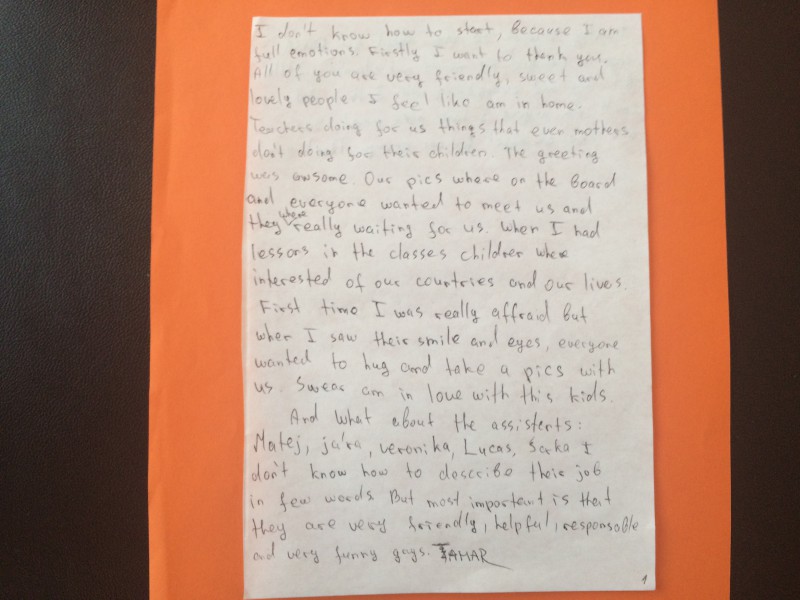 I don't know how to start, Because I am
full emotions. Firstly I want to thank you.
All of you are very friendly, sweet and
lovely people. I feel like am in home.
Teachers doing for us things that even mothers
don't doing for their children. The greeting
was awsome. Our pics where on the Board
and everyone wanted to meet us and
they where really waiting for us. When I had
lessons in the classes children where
interested of our countries and our lives.
First time I was really affraid but
when I saw their smile and eyes, everyone
wanted to hug and take a pics with
us. Swear am in love with this kids.
And what about the assistents:
Matej, ja'ra, veronika, Lucas, Sarka I
don't know how to describe their job
in few words. But most important is that
they are very friendly, helpful, responsable
and very funny guys. TAMAR
1